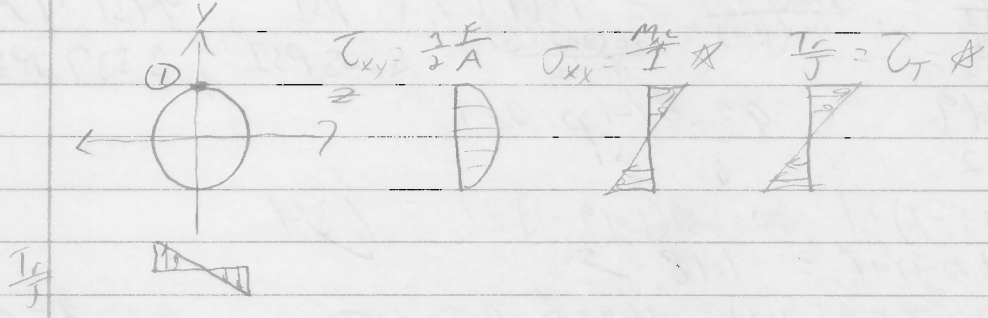 Y
① τxy = 3/2 F/A σxx = Mc/I ☆ Tr/J = τT ☆
z
Tr/J